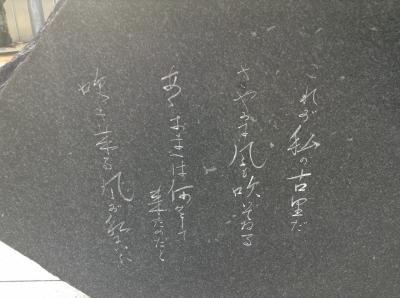 これが私の古里だ
さやかに風も吹いてゐる
あゝ おまへは何をして
来たのだと
吹き来る風が私に云ふ